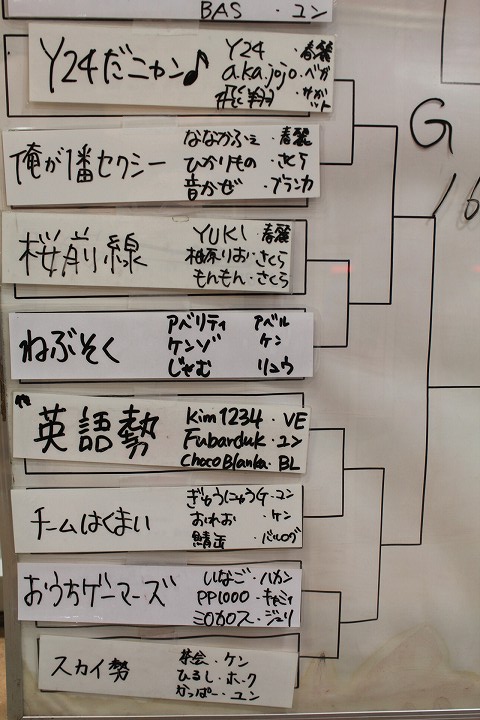 BAS ・ユン
Y24だニャン♪
Y24 ・春麗
a.ka.jojo・ベガ
飛翔 ・サガット
俺が1番セクシー
ななかふぇ ・春麗
ひかりもの ・さくら
音かぜ ・ブランカ
桜前線
YUKI ・春麗
柚原りお・さくら
もんもん・さくら
ねぶそく
アベリティ アベル
ケンゾ ケン
じゃむ リュウ
英語勢
Kim1234・VE
Fubarduk・ユン
ChocoBlanka・BL
チームはくまい
ぎゅうにゅうG・ユン
おれお ・ケン
鯖缶 ・バルログ
おうちゲーマーズ
いなご・ハカン
PP1000・キャミィ
ミロカロス・ジュリ
スカイ勢
茶会・ケン
ひるし・ホーク
かっぱー・ユン
G
16